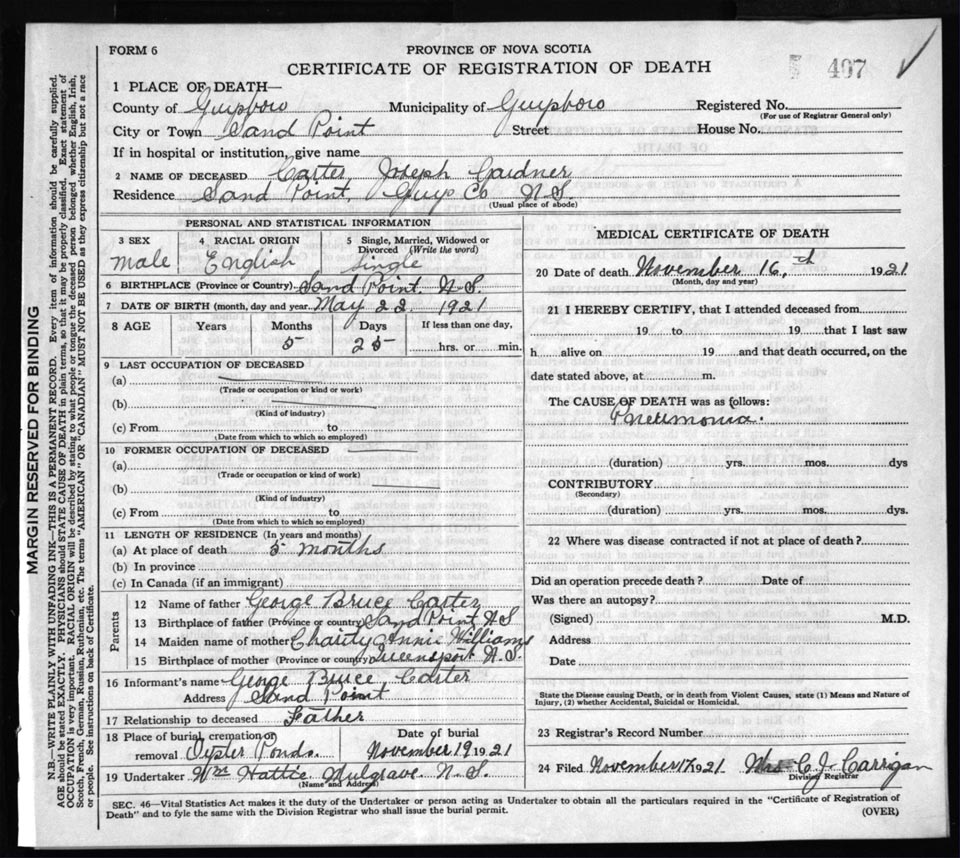 FORM 6
PROVINCE OF NOVA SCOTIA
CERTIFICATE OF REGISTRATION OF DEATH
407
1 PLACE OF DEATH—
County of Guysboro Municipality of Guysboro Registered No.
(For use of Registrar General only)
City or Town Sand Point Street House No.
If in hospital or institution, give name
2 NAME OF DECEASED Carter, Joseph Gardner
Residence Sand Point, Guys Co N.S.
(Usual place of abode)
PERSONAL AND STATISTICAL INFORMATION
3 SEX 4 RACIAL ORIGIN 5 Single, Married, Widowed or Divorced (Write the word)
Male English Single
6 BIRTHPLACE (Province or Country) Sand Point. N.S.
7 DATE OF BIRTH (month, day and year) May 22. 1921
8 AGE Years Months Days If less than one day,
5 25 hrs. or min.
9 LAST OCCUPATION OF DECEASED
(a)
(Trade or occupation or kind or work)
(b)
(Kind of industry)
(c) From to
(Date from which to which so employed)
10 FORMER OCCUPATION OF DECEASED
(a)
(Trade or occupation or kind of work)
(b)
(Kind of industry)
(c) From to
(Date from which to which so employed)
11 LENGTH OF RESIDENCE (In years and months)
(a) At place of death 5 months
(b) In province
(c) In Canada (if an immigrant)
Parents
12 Name of father George Bruce Carter
13 Birthplace of father (Province or country) Sand Point N S
14 Maiden name of mother Charity Annie Williams
15 Birthplace of mother (Province or country) Queensport N.S.
16 Informant's name George Bruce Carter
Address Sand Point
17 Relationship to deceased Father
18 Place of burial, cremation or removal Oyster Ponds. Date of burial November 19 1921
19 Undertaker Wm Hattie Mulgrave N.S.
(Name and Address)
MEDICAL CERTIFICATE OF DEATH
20 Date of death November 16, 1921
(Month, day and year)
21 I HEREBY CERTIFY, that I attended deceased from
19 to 19 that I last saw
h alive on 19 and that death occurred, on the
date stated above, at m.
The CAUSE OF DEATH was as follows:
Pneumonia.
(duration) yrs. mos. dys
CONTRIBUTORY
(Secondary)
(duration) yrs. mos. dys.
22 Where was disease contracted if not at place of death?
Did an operation precede death? Date of
Was there an autopsy?
(Signed) M.D.
Address
Date
State the Disease causing Death, or in death from Violent Causes, state (1) Means and Nature of
Injury, (2) whether Accidental, Suicidal or Homicidal.
23 Registrar's Record Number
24 Filed November 17 1921 Mrs C. J. Carrigan
Division Registrar
SEC. 46—Vital Statistics Act makes it the duty of the Undertaker or person acting as Undertaker to obtain all the particulars required in the "Certificate of Registration of
Death" and to fyle the same with the Division Registrar who shall issue the burial permit.
(OVER)
MARGIN RESERVED FOR BINDING
N.B.—WRITE PLAINLY WITH UNFADING INK—THIS IS A PERMANENT RECORD. Every item of information should be carefully supplied.
AGE should be stated EXACTLY. PHYSICIANS should STATE CAUSE OF DEATH in plain terms, so that it may be properly classified. Exact statement of
OCCUPATION is very important. RACIAL ORIGIN will be described by stating to what people or tongue the deceased person belonged whether English, Irish,
Scotch, French, German, Russian, Ruthenian, etc. The terms "AMERICAN" OR "CANADIAN" MUST NOT BE USED as they express citizenship but not a race
or people. See instructions on back of Certificate.